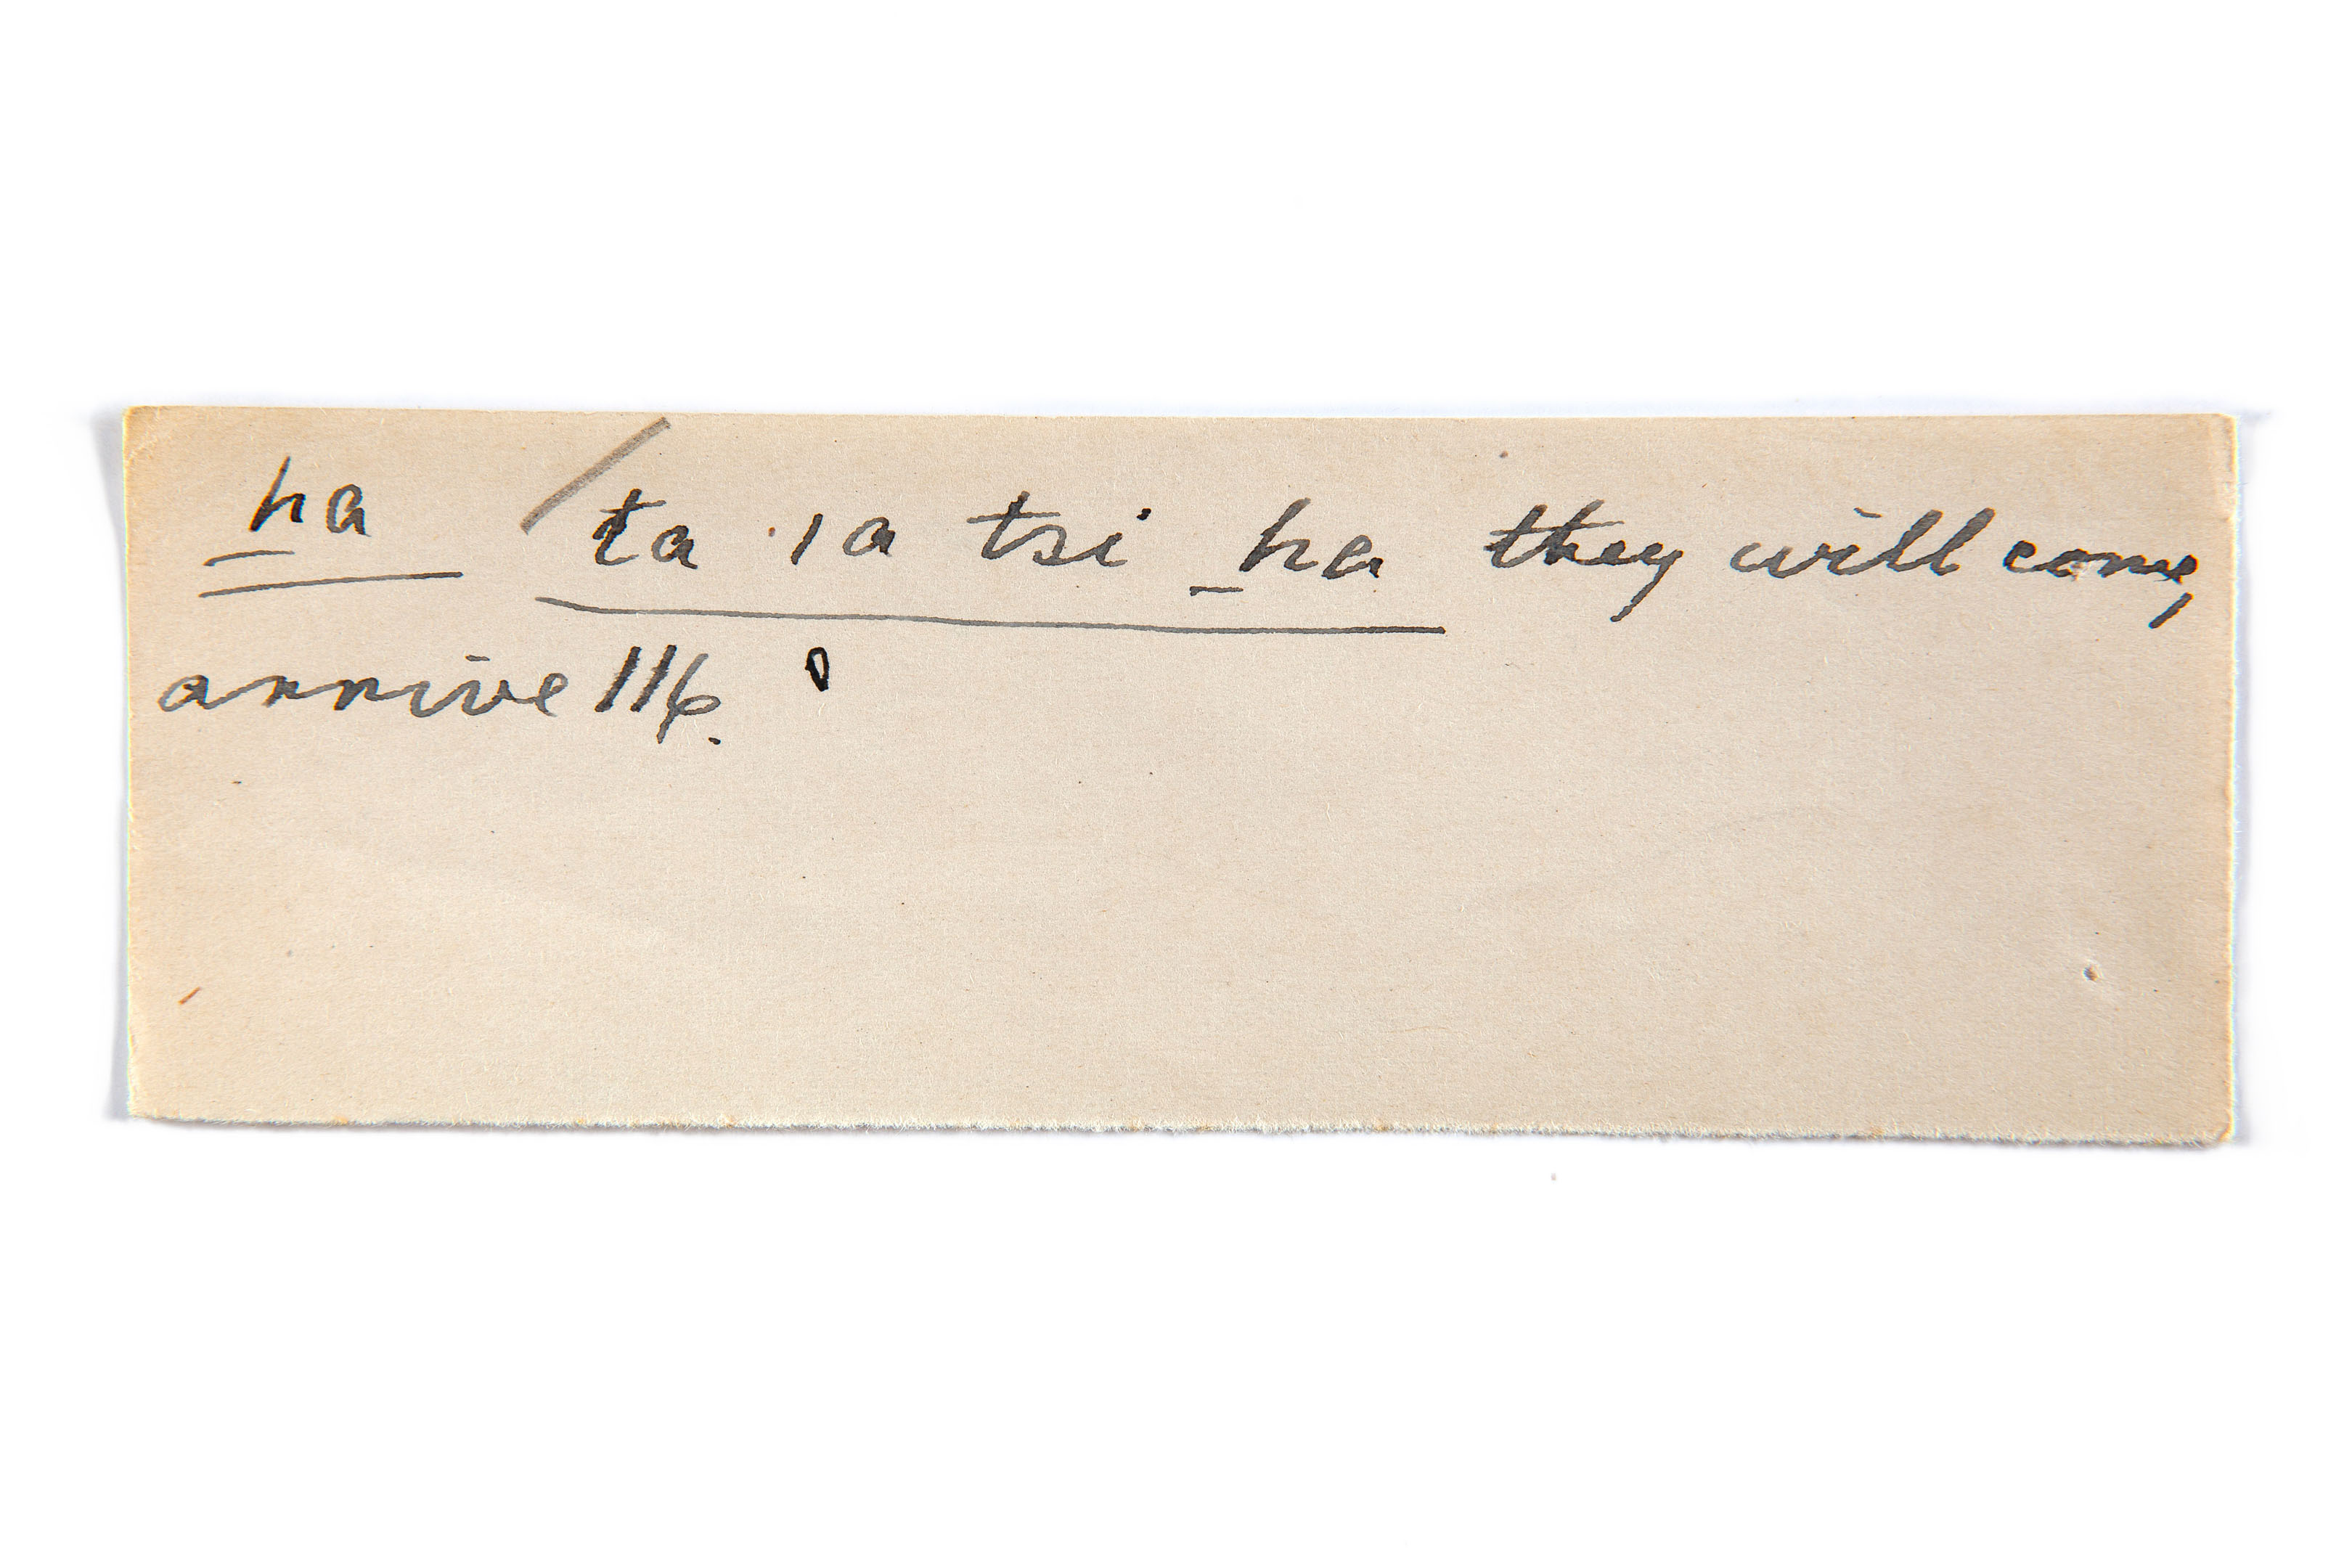 _ha / ta ıa tsi _ha they will come,
arrive 116.